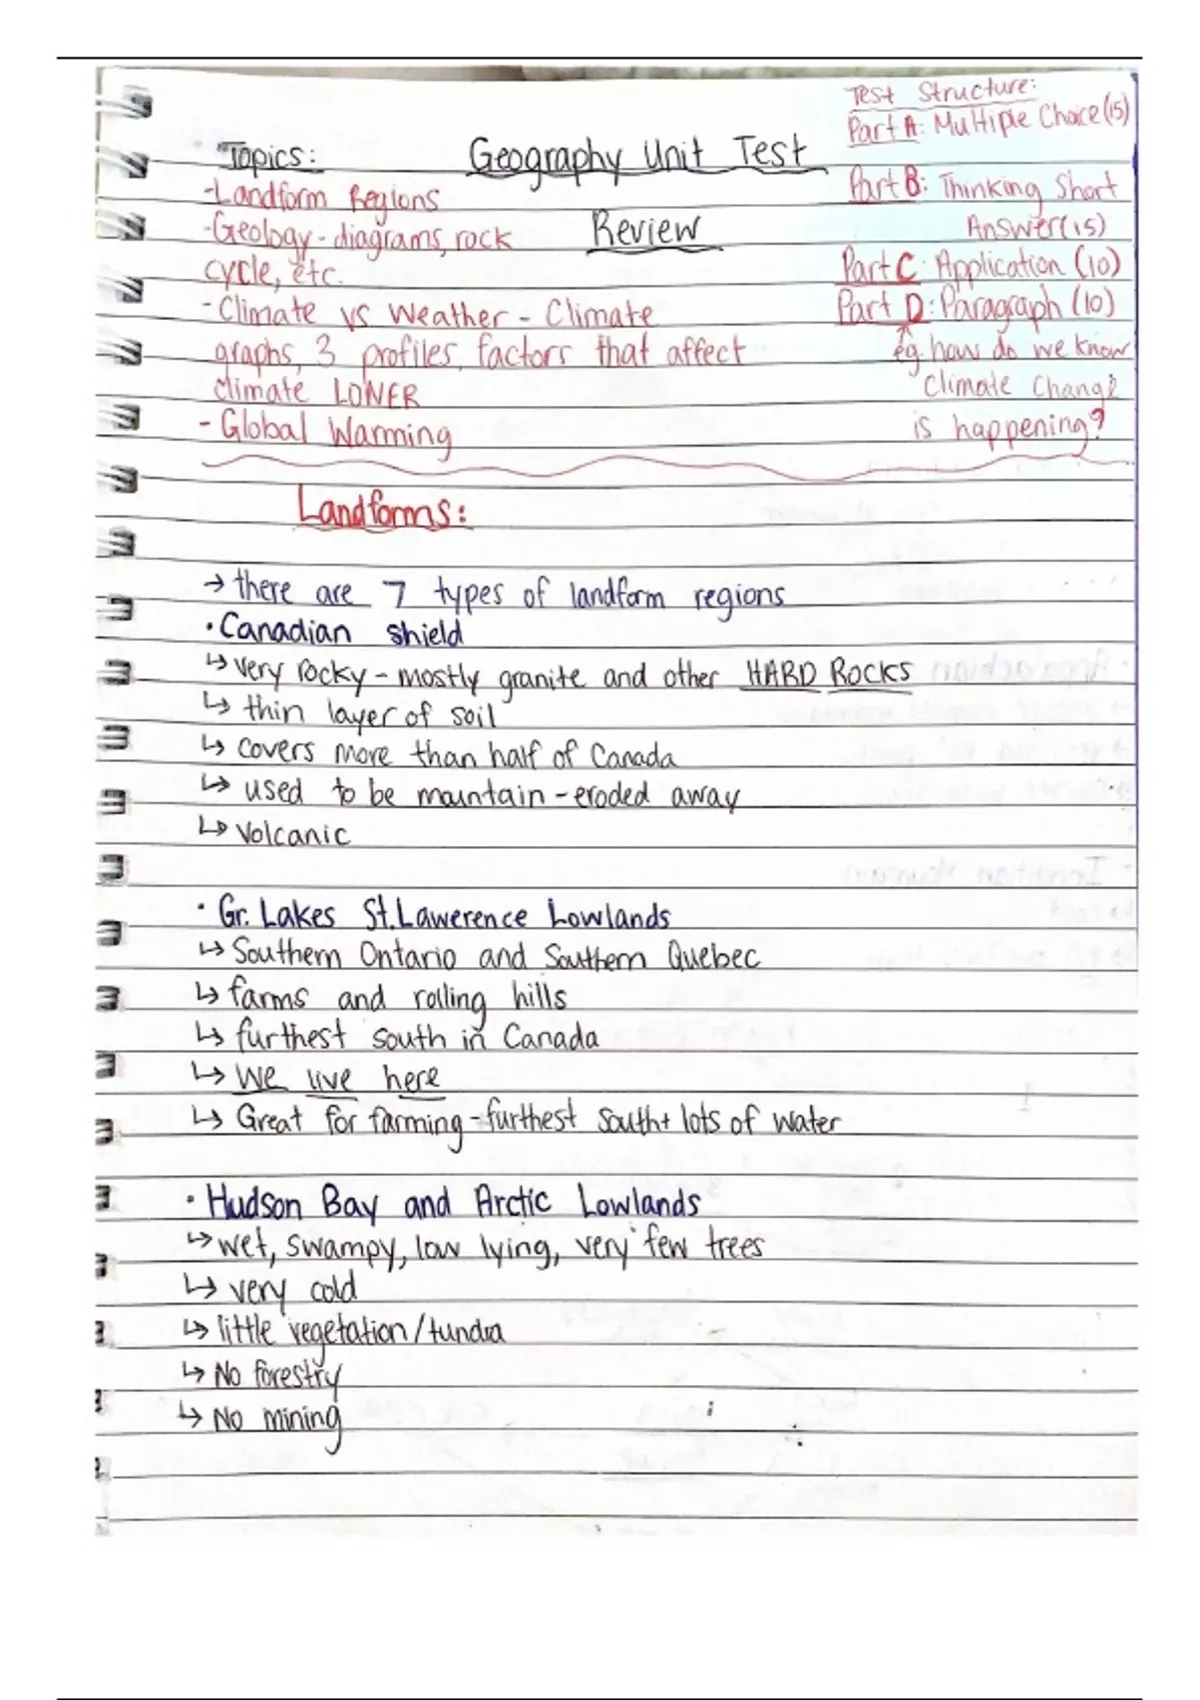 Test Structure:
Part A: Multiple Choice (15)
Topics: Geography Unit Test
-Landform Regions Part B: Thinking Short
-Geology - diagrams, rock Review Answer (15)
cycle, etc. Part C: Application (10)
- Climate vs Weather - Climate Part D: Paragraph (10)
graphs, 3 profiles, factors that affect eg. how do we know
climate LOWER climate change
- Global Warming is happening?
Landforms:
→ there are 7 types of landform regions
• Canadian shield
↳ very rocky - mostly granite and other HARD ROCKS
↳ thin layer of soil
↳ covers more than half of Canada
↳ used to be mountain - eroded away
↳ Volcanic
• Gr. Lakes St. Lawerence Lowlands
↳ Southern Ontario and Southern Quebec
↳ farms and rolling hills
↳ furthest south in Canada
↳ We live here
↳ Great for farming - furthest south + lots of water
• Hudson Bay and Arctic Lowlands
↳ wet, swampy, low lying, very few trees
↳ very cold
↳ little vegetation / tundra
↳ No forestry
↳ No mining